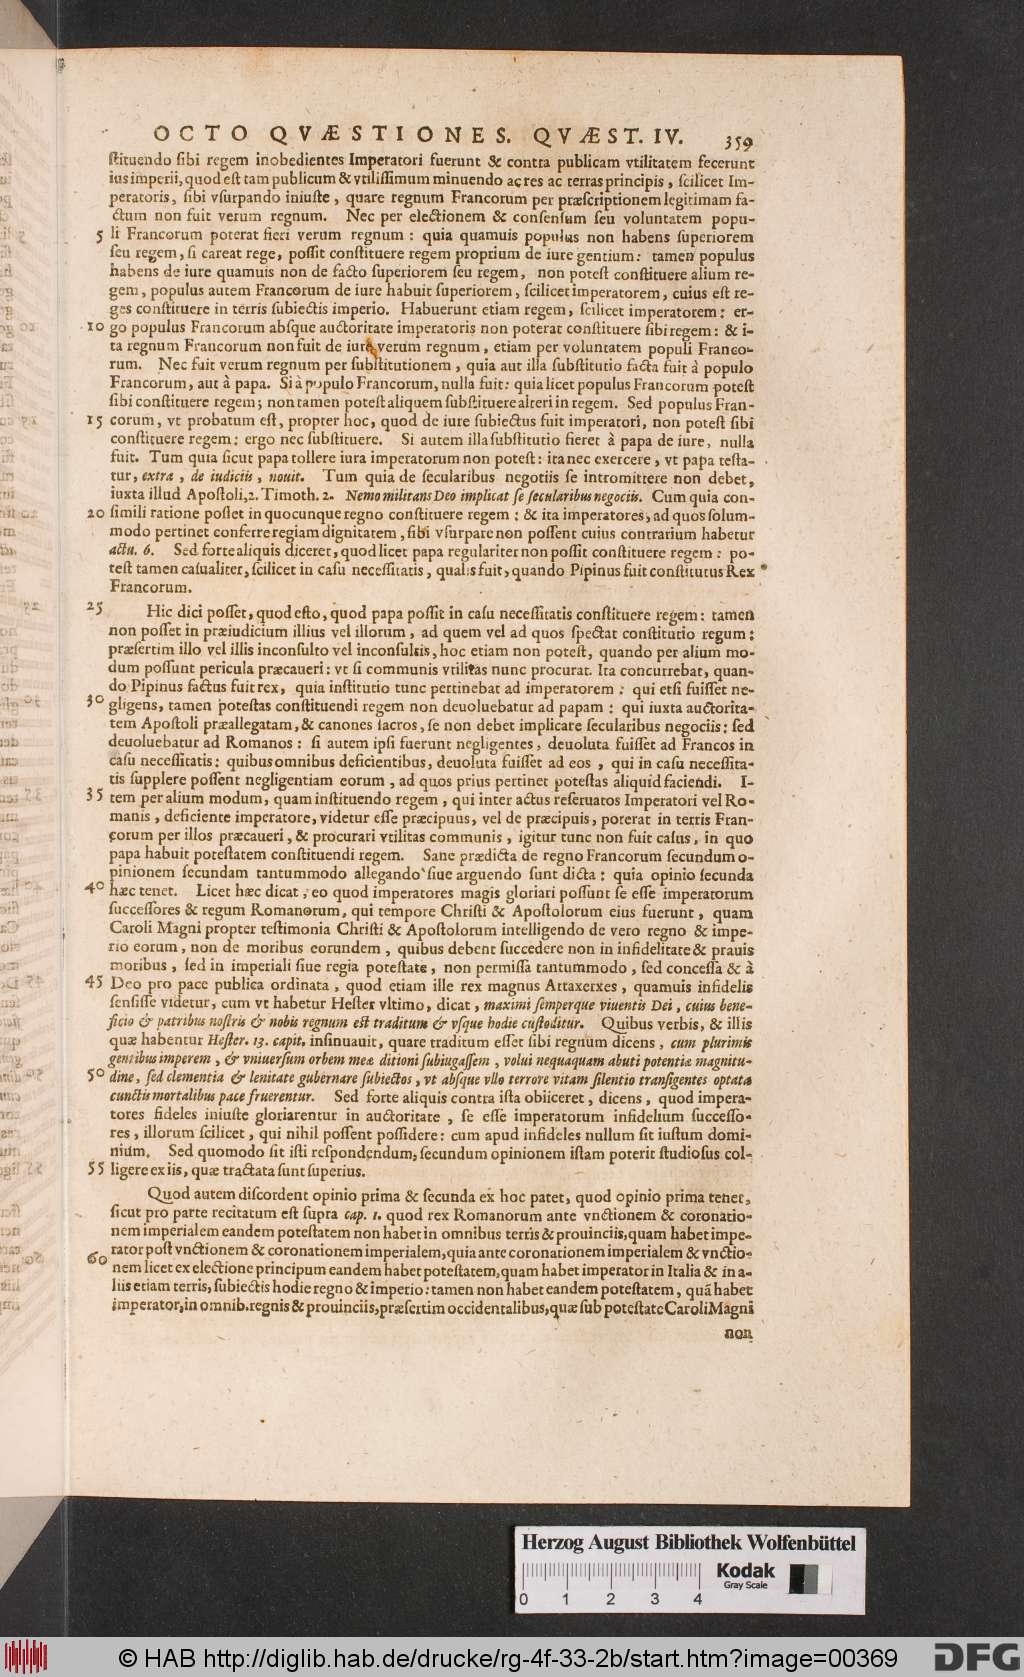 OCTO QVÆSTIONES. QVÆST. IV. 359
ſtituendo ſibi regem inobedientes Imperatori fuerunt & contra publicam vtilitatem fecerunt
ius imperii, quod eſt tam publicum & vtiliſſimum minuendo ac res ac terras principis, ſcilicet Im-
peratoris, ſibi vſurpando iniuſte, quare regnum Francorum per præſcriptionem legitimam fa-
ctum non fuit verum regnum. Nec per electionem & conſenſum ſeu voluntatem popu-
5 li Francorum poterat fieri verum regnum : quia quamuis populus non habens ſuperiorem
ſeu regem, ſi careat rege, poſſit conſtituere regem proprium de iure gentium: tamen populus
habens de iure quamuis non de facto ſuperiorem ſeu regem, non poteſt conſtituere alium re-
gem, populus autem Francorum de iure habuit ſuperiorem, ſcilicet imperatorem, cuius eſt re-
ges conſtituere in terris ſubiectis imperio. Habuerunt etiam regem, ſcilicet imperatorem: er-
10 go populus Francorum abſque auctoritate imperatoris non poterat conſtituere ſibi regem: & i-
ta regnum Francorum non fuit de iure verum regnum, etiam per voluntatem populi Franco-
rum. Nec fuit verum regnum per ſubſtitutionem, quia aut illa ſubſtitutio facta fuit à populo
Francorum, aut à papa. Si à populo Francorum, nulla fuit: quia licet populus Francorum poteſt
ſibi conſtituere regem; non tamen poteſt aliquem ſubſtituere alteri in regem. Sed populus Fran-
15 corum, vt probatum eſt, propter hoc, quod de iure ſubiectus fuit imperatori, non poteſt ſibi
conſtituere regem: ergo nec ſubſtituere. Si autem illa ſubſtitutio fieret à papa de iure, nulla
fuit. Tum quia ſicut papa tollere iura imperatorum non poteſt: ita nec exercere, vt papa teſta-
tur, extra, de iudiciis, nouit. Tum quia de ſecularibus negotiis ſe intromittere non debet,
iuxta illud Apoſtoli, 2. Timoth. 2. Nemo militans Deo implicat ſe ſecularibus negociis. Cum quia con-
20 ſimili ratione poſſet in quocunque regno conſtituere regem : & ita imperatores, ad quos ſolum-
modo pertinet conferre regiam dignitatem, ſibi vſurpare non poſſent cuius contrarium habetur
actu. 6. Sed forte aliquis diceret, quod licet papa regulariter non poſſit conſtituere regem : po-
teſt tamen caſualiter, ſcilicet in caſu neceſſitatis, qualis fuit, quando Pipinus fuit conſtitutus Rex
Francorum.
25 Hic dici poſſet, quod eſto, quod papa poſſit in caſu neceſſitatis conſtituere regem: tamen
non poſſet in præiudicium illius vel illorum, ad quem vel ad quos ſpectat conſtitutio regum:
præſertim illo vel illis inconſulto vel inconſultis, hoc etiam non poteſt, quando per alium mo-
dum poſſunt pericula præcaueri: vt ſi communis vtilitas nunc procurat. Ita concurrebat, quan-
do Pipinus factus fuit rex, quia inſtitutio tunc pertinebat ad imperatorem : qui etſi fuiſſet ne-
30 gligens, tamen poteſtas conſtituendi regem non deuoluebatur ad papam : qui iuxta auctorita-
tem Apoſtoli præallegatam, & canones ſacros, ſe non debet implicare ſecularibus negociis: ſed
deuoluebatur ad Romanos : ſi autem ipſi fuerunt negligentes, deuoluta fuiſſet ad Francos in
caſu neceſſitatis: quibus omnibus deficientibus, deuoluta fuiſſet ad eos, qui in caſu neceſſita-
tis ſupplere poſſent negligentiam eorum, ad quos prius pertinet poteſtas aliquid faciendi. I-
35 tem per alium modum, quam inſtituendo regem, qui inter actus reſeruatos Imperatori vel Ro-
manis, deficiente imperatore, videtur eſſe præcipuus, vel de præcipuis, poterat in terris Fran-
corum per illos præcaueri, & procurari vtilitas communis, igitur tunc non fuit caſus, in quo
papa habuit poteſtatem conſtituendi regem. Sane prædicta de regno Francorum ſecundum o-
pinionem ſecundam tantummodo allegando ſiue arguendo ſunt dicta: quia opinio ſecunda
40 hæc tenet. Licet hæc dicat, eo quod imperatores magis gloriari poſſunt ſe eſſe imperatorum
ſucceſſores & regum Romanorum, qui tempore Chriſti & Apoſtolorum eius fuerunt, quam
Caroli Magni propter teſtimonia Chriſti & Apoſtolorum intelligendo de vero regno & impe-
rio eorum, non de moribus eorundem, quibus debent ſuccedere non in infidelitate & prauis
moribus, ſed in imperiali ſiue regia poteſtate, non permiſſa tantummodo, ſed conceſſa & à
45 Deo pro pace publica ordinata, quod etiam ille rex magnus Artaxerxes, quamuis infidelis
ſenſiſſe videtur, cum vt habetur Heſter vltimo, dicat, maximi ſemperque viuentis Dei, cuius bene-
ficio & patribus noſtris & nobis regnum eſt traditum & vſque hodie cuſtoditur. Quibus verbis, & illis
quæ habentur Heſter. 13. capit, inſinuauit, quare traditum eſſet ſibi regnum dicens, cum plurimis
gentibus imperem, & vniuerſum orbem meæ ditioni ſubiugaſſem, volui nequaquam abuti potentiæ magnitu-
50 dine, ſed clementia & lenitate gubernare ſubiectos, vt abſque vllo terrore vitam ſilentio tranſigentes optata
cunctis mortalibus pace fruerentur. Sed forte aliquis contra iſta obiiceret, dicens, quod impera-
tores fideles iniuſte gloriarentur in auctoritate, ſe eſſe imperatorum infidelium ſucceſſo-
res, illorum ſcilicet, qui nihil poſſent poſſidere: cum apud infideles nullum ſit iuſtum domi-
nium. Sed quomodo ſit iſti reſpondendum, ſecundum opinionem iſtam poterit ſtudioſus col-
55 ligere ex iis, quæ tractata ſunt ſuperius.
Quod autem diſcordent opinio prima & ſecunda ex hoc patet, quod opinio prima tenet,
ſicut pro parte recitatum eſt ſupra cap. 1. quod rex Romanorum ante vnctionem & coronatio-
nem imperialem eandem poteſtatem non habet in omnibus terris & prouinciis, quam habet impe-
rator poſt vnctionem & coronationem imperialem, quia ante coronationem imperialem & vnctio-
60 nem licet ex electione principum eandem habet poteſtatem, quam habet imperator in Italia & in a-
liis etiam terris, ſubiectis hodie regno & imperio: tamen non habet eandem poteſtatem, quā habet
imperator, in omnib. regnis & prouinciis, præſertim occidentalibus, quæ ſub poteſtate Caroli Magni
non
Herzog August Bibliothek Wolfenbüttel
Kodak
Gray Scale
0 1 2 3 4
© HAB http://diglib.hab.de/drucke/rg-4f-33-2b/start.htm?image=00369
DFG